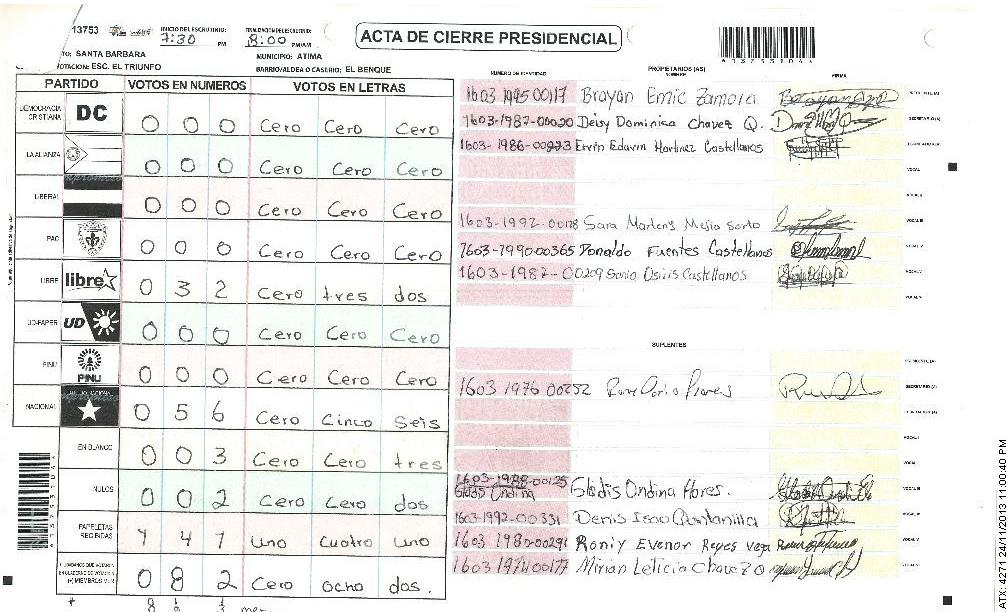 13753
INICIO DEL ESCRUTINIO
7:30 PM
FINALIZACION DEL ESCRUTINIO
8:00 PM/AM
ACTA DE CIERRE PRESIDENCIAL
TO: SANTA BARBARA
MUNICIPIO: ATIMA
VOTACION: ESC. EL TRIUNFO
BARRIO/ALDEA O CASERIO: EL BENQUE
PARTIDO VOTOS EN NUMEROS VOTOS EN LETRAS
DEMOCRACIA CRISTIANA DC 0 0 0 Cero Cero Cero
LA ALIANZA 0 0 0 Cero Cero Cero
LIBERAL 0 0 0 Cero Cero Cero
PAC 0 0 0 Cero Cero Cero
LIBRE libre 0 3 2 Cero tres dos
UD-FAPER UD 0 0 0 Cero Cero Cero
PINU PINU 0 0 0 Cero Cero Cero
NACIONAL 0 5 6 Cero Cinco Seis
EN BLANCO 0 0 3 Cero Cero tres
NULOS 0 0 2 Cero Cero dos
PAPELETAS RECIBIDAS 1 4 1 Uno Cuatro uno
0 8 2 Cero ocho dos.
NUMERO DE IDENTIDAD PROPIETARIOS (AS) NOMBRE FIRMA
1603 1995 00117 Brayan Emic Zamora
1603-1982-00020 Deisy Dominica Chavez Q. SECRETARIO (A)
1603-1986-00223 Ervin Edavin Martinez Castellanos
VOCAL I
VOCAL II
1603-1992-00128 Sara Marlenis Mejia Sorto VOCAL III
1603-1990-00365 Donaldo Fuentes Castellanos
1603-1982-00209 Sonia Osiris Castellanos VOCAL V
SUPLENTES
1603 1976 00252 SECRETARIO (A)
Gladis Ondina Gladis Ondina Flores.
1603-1992-00331 Denis Isao Quintanilla
1603 1980-00291 Roniy Evenor Reyes Vega VOCAL V
1603 1974 00177 Mirian Leticia Chavez O
ATX: 4271 24/11/2013 11:00:40 PM